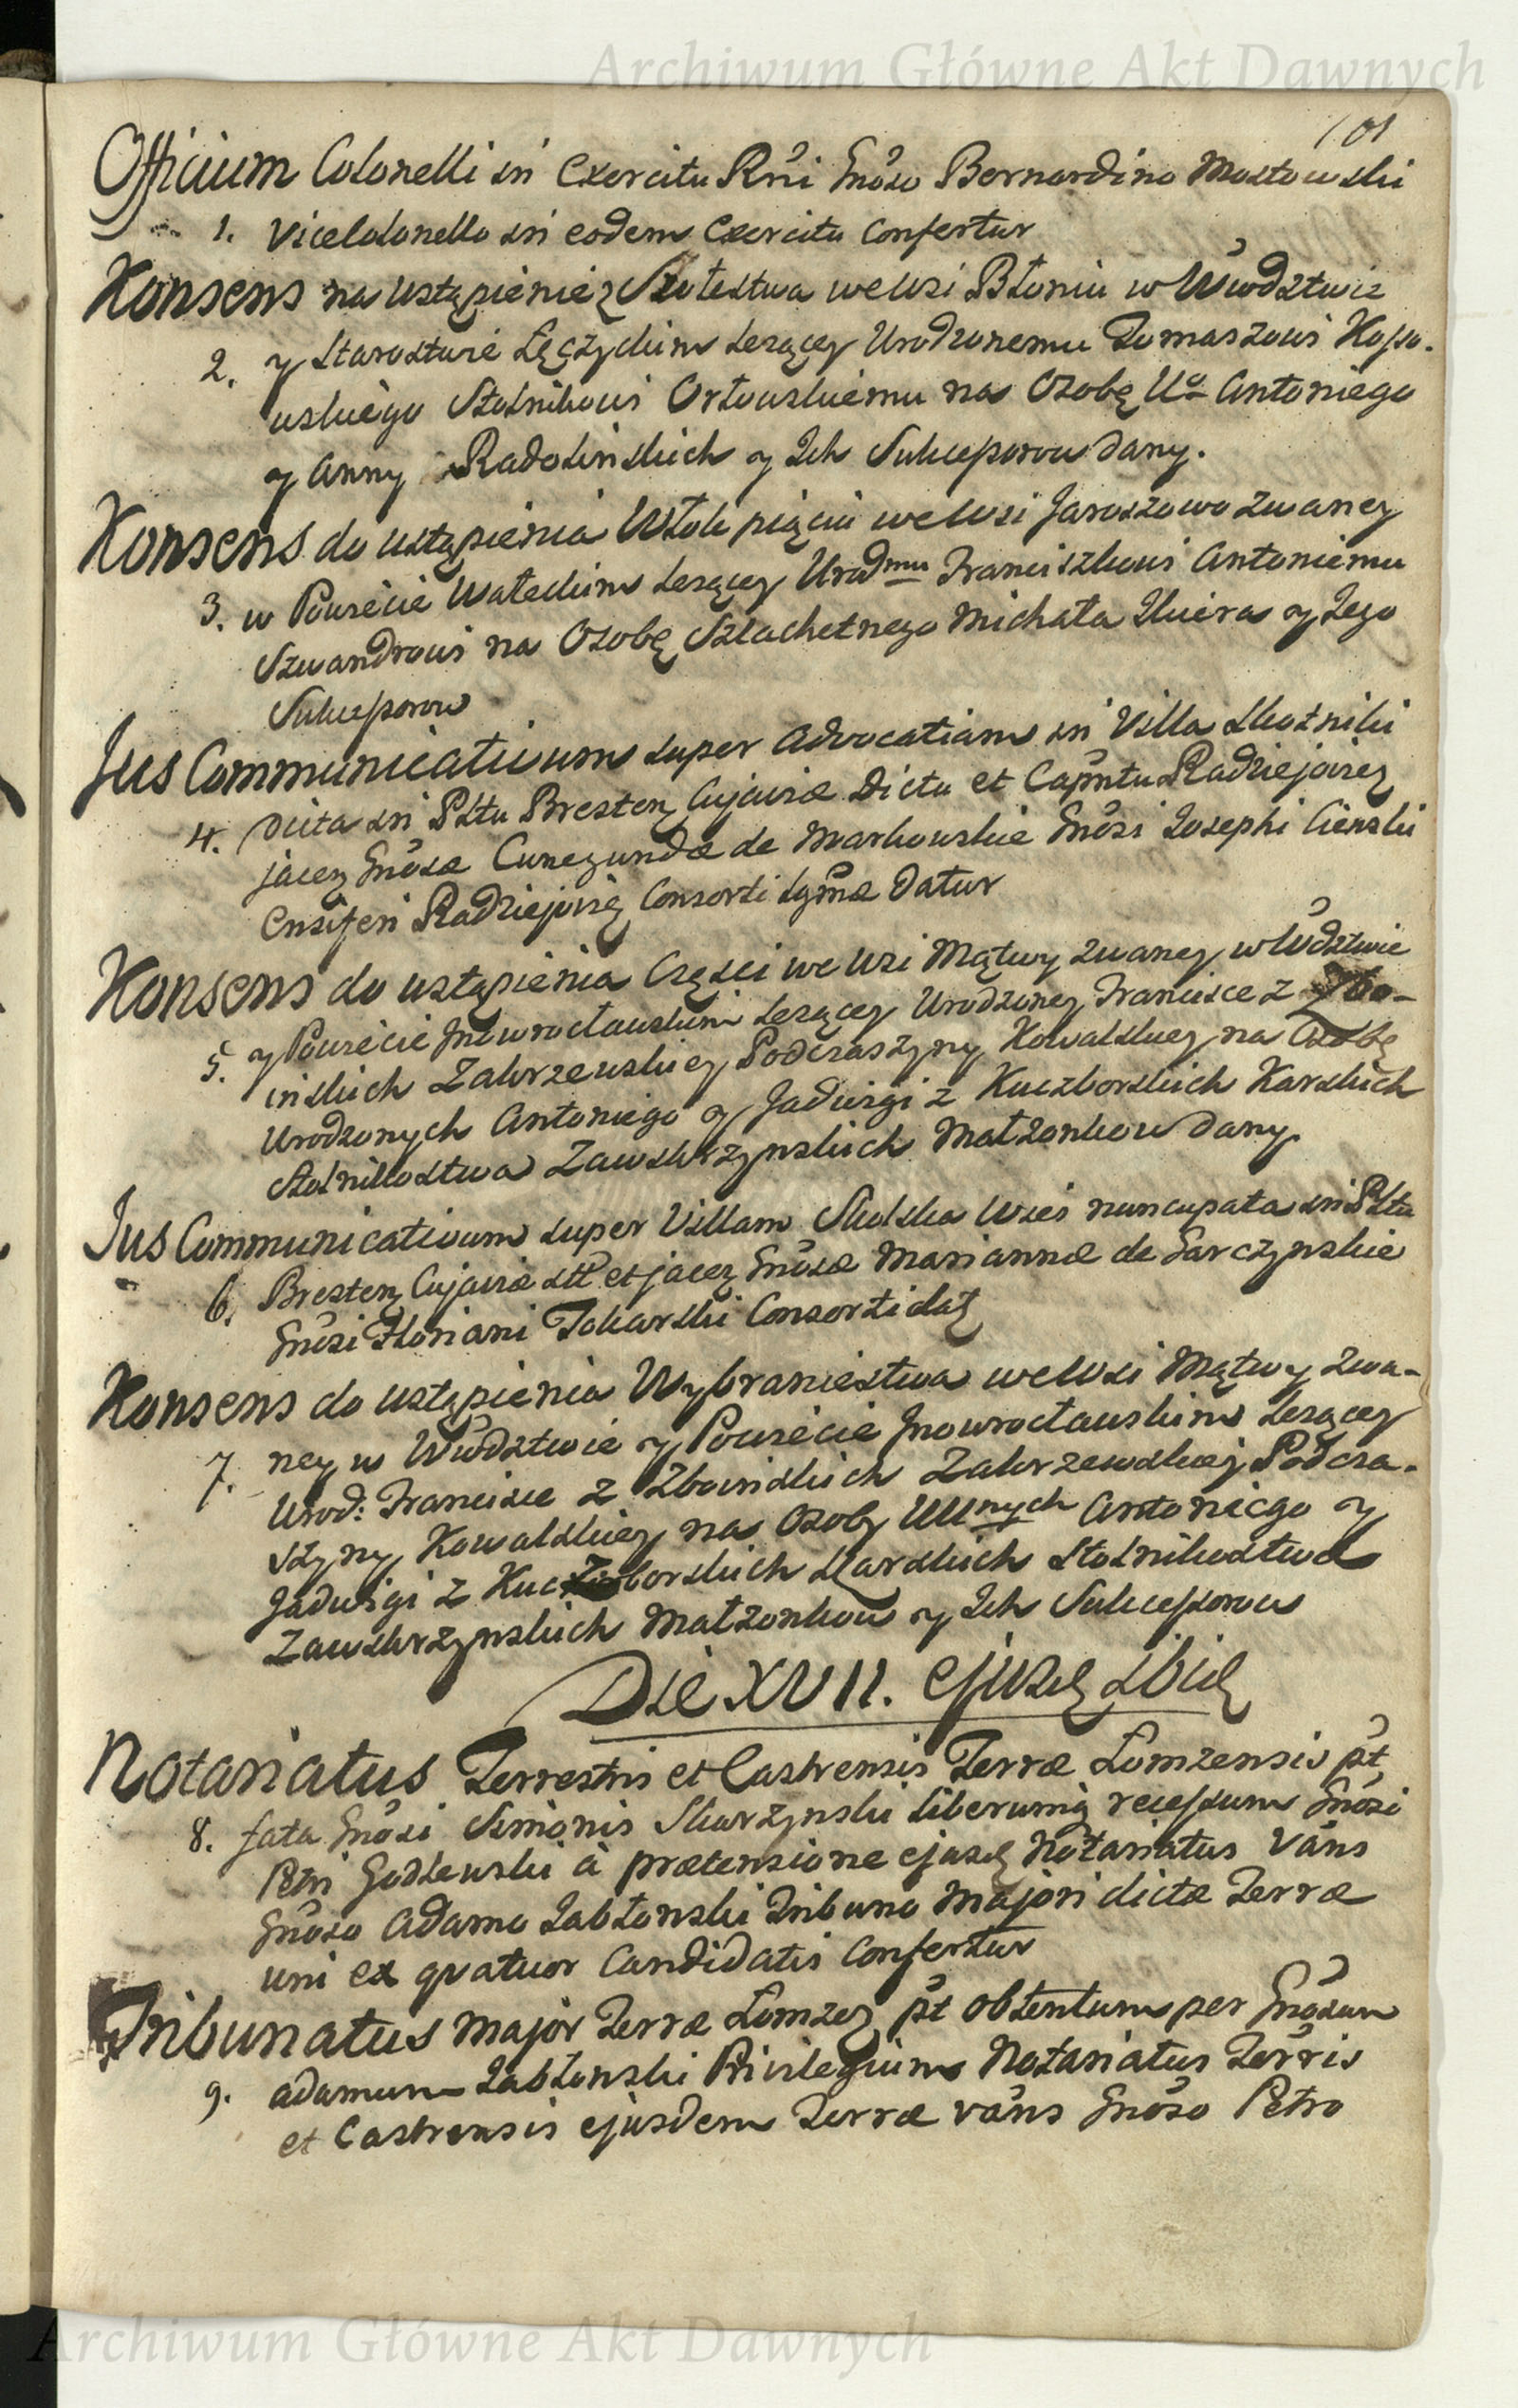 Archiwum Główne Akt Dawnych
101
Officium Colonelli in Exercitu Rni Gnoso Bernardino Mostowski
1. ViceColonello in eodem Exercitu Confertur
Konsens na ustąpienie z Szołestwa we Wsi Błoniu w Wwodztwie
2. y Starostwie Łęczyckim leżącey Urodzonemu Tomaszowi Kosso-
wskiego Stolnikowi Orłowskiemu na Osobę Uo Antoniego
y Anny Radolinskich y Ich Sukcessorow dany.
Konsens do ustąpienia Włok pięciu we Wsi Jaroszewo zwaney
3. w Powiecie Wałeckim leżącey Urodmu Franciszkowi Antoniemu
Szwandrowi na Osobę Szlachetnego Michała y Jego
Sukcessorow
Jus Communicativum super Advocatiam in Villa Skotniki
4. dicta in Pltu Bresten Cujaviæ dicta et Capntu Radziejovien
jacen Gnosæ Cunegundæ de Markowskie Gnosi Josephi Cienski
Ensiferi Radziejovien Consorti lgmæ datur
Konsens do ustąpienia Części we Wsi Mątwy zwaney w Wdztwie
5. y Powiecie Inowrocławskim leżącey Urodzoney Francisce z Zbo-
inskich Zakrzewskiey Podczaszyny Kowalskiey na Osobę
Urodzonych Antoniego y Jadwigi z Kuczborskich Karskich
Stolnikostwa Zawskrzynskich Małzonkow dany.
Jus Communicativum super Villam Skulska Wies nuncupata in Pltu
6. Bresten Cujaviæ stt et jacen Gnosæ Mariannæ de Garczynskie
Gnosi Floriani Tokarski Consorti datę
Konsens do ustąpienia Wybraniestwa we Wsi Mątwy zwa-
7. ney w Wwodztwie y Powiecie Inowrocławskim leżącey
Urod: Francisce z Zboinskich Zakrzewskiey Podcza-
szyny Kowalskiey na Osoby UUnych Antoniego y
Jadwigi z Kuczborskich Karskich Stolnikostwa
Zawskrzynskich Małzonkow y Ich Sukcessorow
Die XVII. ejusdę ibidę
Notariatus Terrestris et Castrensis Terræ Łomzensis pt
8. fata Gnosi Simonis Skarzynski liberumq recessum Gnosi
Petri Godlewski à prætensione ejusdę Notariatus Vans
Gnoso Adamo Jabłonski Tribuno Majori dictæ Terræ
uni ex quatuor Candidatis Confertur
Tribunatus Major Terræ Łomzen pt obtentum per Gnosum
9. Adamum Jabłonski Privilegium Notariatus Terris
et Castrensis ejusdem Terræ vans Gnoso Petro
Archiwum Główne Akt Dawnych